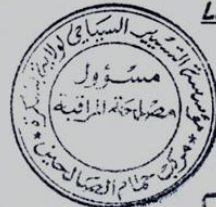 مؤسسة التسيير السياحي لولاية بسكرة
مسؤول
مصلحة المراقبة
مركب حمام الصالحين